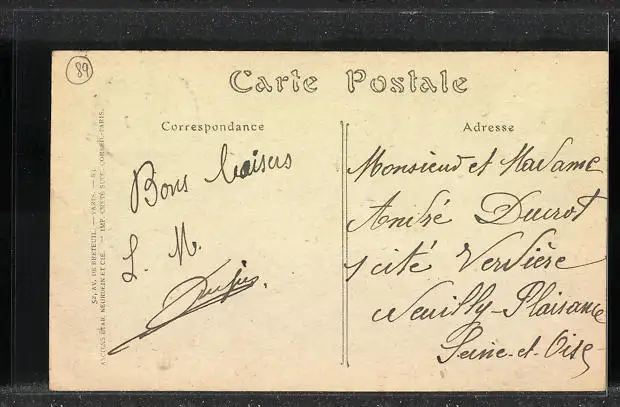 89
Carte Postale
Correspondance
Adresse
Bons baisers
L. M.
Monsieur et Madame
André Ducrot
1 cité Verdière
Neuilly-Plaisance
Seine-et-Oise
52, AV. DE BRETEUIL. — PARIS.
ANCIENS ÉTAB. NEURDEIN ET CIE. — IMP. CRÉTÉ SUCC. CORBEIL-PARIS.